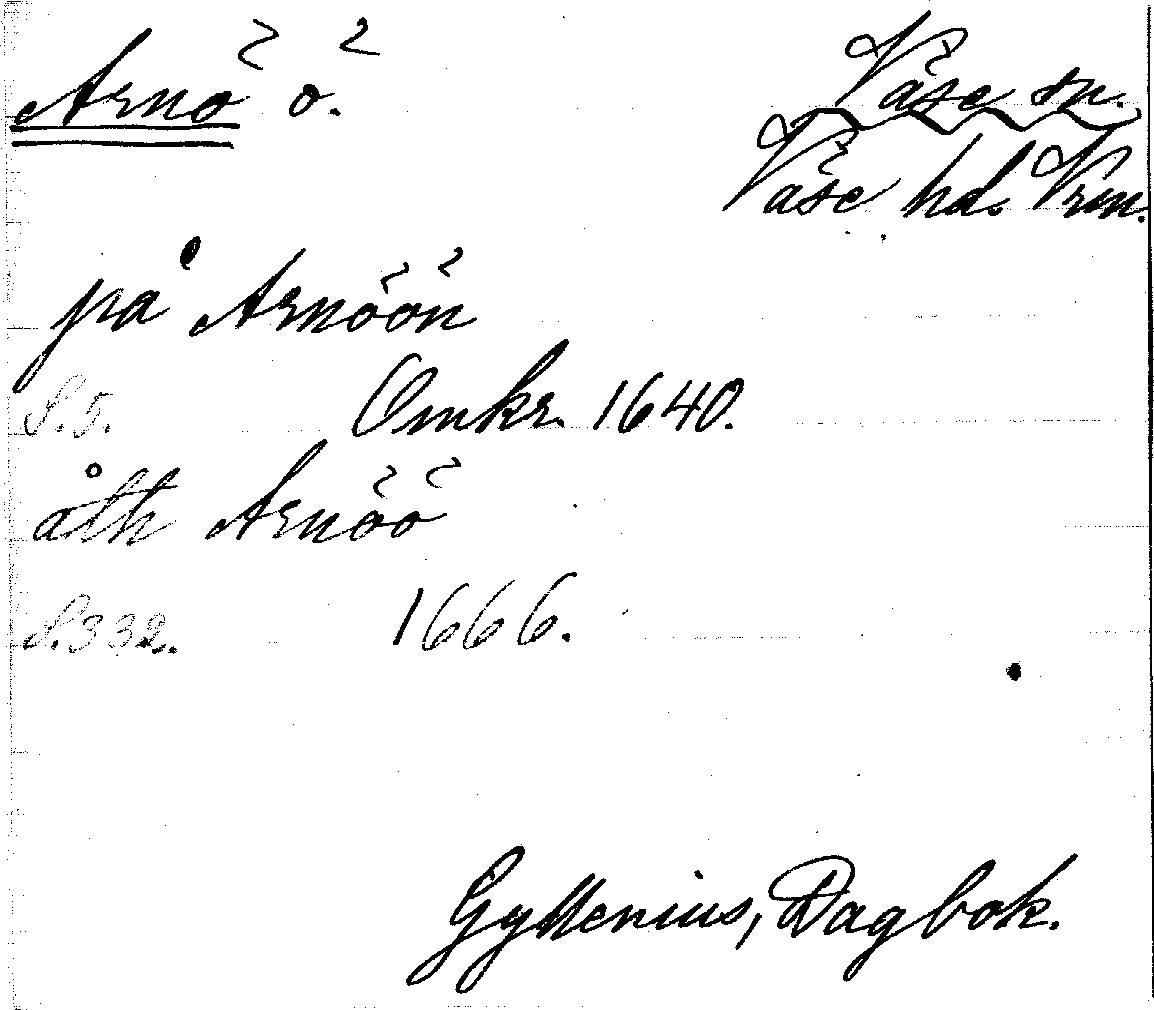 Arnö ö.
Väse sn.
Väse hd. Vrm.
på Arnöön
S. 5. Omkr. 1640.
åth Arnöö
S. 332. 1666.
Gyllenius, Dagbok.